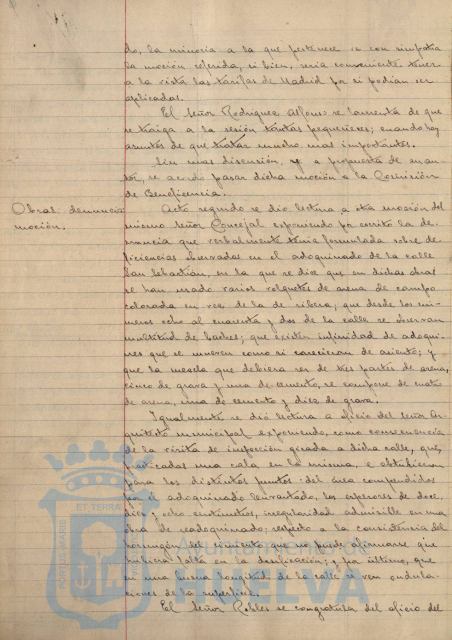 do, la minoria a la que pertenece ve con simpatia
la moción referida, si bien, seria conveniente tener
a la vista las tarifas de Madrid por si podian ser
aplicadas.
El Señor Rodriguez Alfonso se lamenta de que
se traiga a la sesión tantas pequeñeces; cuando hay
asuntos de que tratar mucho mas importantes.
Sin mas discusión, y a propuesta de su autor,
se acordó pasar dicha moción a la Comisión
de Beneficencia.
Obras denuncia
moción.
Acto seguido se dió lectura a otra moción del
mismo Señor Concejal exponiendo por escrito la de-
nuncia que verbalmente tenia formulada sobre de-
ficiencias observadas en el adoquinado de la calle
San Sebastián, en la que se dice que en dichas obras
se han usado varios volquetes de arena de campo
colorada en vez de la de ribera; que desde los nú-
meros ocho al cuarenta y dos de la calle se observan
multitud de baches; que existen infinidad de adoqui-
nes que se mueven como si carecieran de asiento; y
que la mezcla que debiera ser de tres partes de arena,
cinco de grava y una de cemento, se compone de cuatro
de arena, una de cemento y diez de grava.
Igualmente se dió lectura a oficio del Señor Ar-
quitecto municipal exponiendo, como consecuencia
de la visita de inspección girada a dicha calle, que,
practicadas una cala en la misma, se obtuvieron
para los distintos puntos del área comprendidos
por el adoquinado levantado, los espesores de doce,
diez y ocho centímetros, irregularidad admisible en una
obra de readoquinado; respecto a la consistencia del
hormigón del cimiento que no puede afirmarse que
hubiera falta en la dosificación; y por último, que
en una buena longitud de la calle se ven ondula-
ciones de la superficie.
El Señor Robles se congratula del oficio del
ET TERRA
PORTUS MARIS
Ayuntamiento de
HUELVA